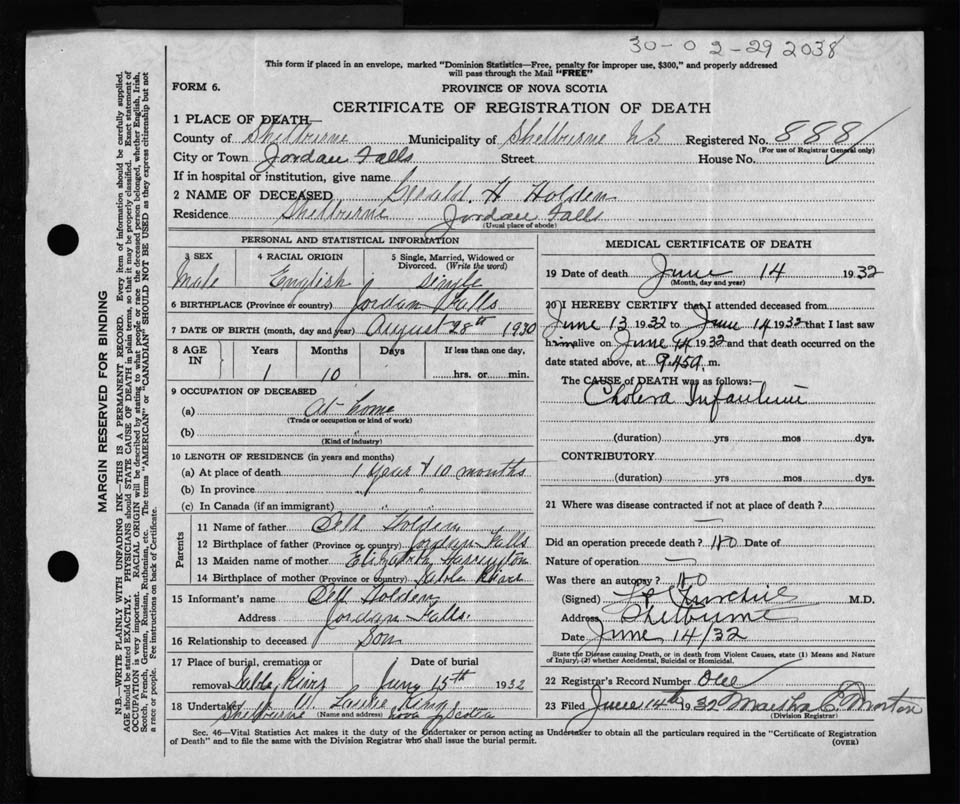 30-02-29 2038
This form if placed in an envelope, marked "Dominion Statistics—Free, penalty for improper use, $300," and properly addressed
will pass through the Mail "FREE"
FORM 6.
PROVINCE OF NOVA SCOTIA
CERTIFICATE OF REGISTRATION OF DEATH
1 PLACE OF DEATH—
County of Shelburne Municipality of Shelburne NS Registered No. 888
(For use of Registrar General only)
City or Town Jordan Falls Street House No.
If in hospital or institution, give name
2 NAME OF DECEASED Gerald H Holden
Residence Shelburne Jordan Falls
(Usual place of abode)
PERSONAL AND STATISTICAL INFORMATION
3 SEX 4 RACIAL ORIGIN 5 Single, Married, Widowed or
Divorced. (Write the word)
Male English Single
6 BIRTHPLACE (Province or country) Jordan Falls
7 DATE OF BIRTH (month, day and year) August 28th 1930
8 AGE IN Years Months Days If less than one day,
1 10 hrs. or min.
9 OCCUPATION OF DECEASED
(a) At home
(Trade or occupation or kind of work)
(b) "
(Kind of industry)
10 LENGTH OF RESIDENCE (in years and months)
(a) At place of death 1 year & 10 months
(b) In province " "
(c) In Canada (if an immigrant) " "
Parents
11 Name of father Dell Holden
12 Birthplace of father (Province or country) Jordan Falls
13 Maiden name of mother Elizabeth Harrington
14 Birthplace of mother (Province or country) Sable River
15 Informant's name Dell Holden
Address Jordan Falls.
16 Relationship to deceased Son
17 Place of burial, cremation or Date of burial
removal Sable River June 15th 1932
18 Undertaker Laurie King
Shelburne (Name and address) Nova Scotia
MEDICAL CERTIFICATE OF DEATH
19 Date of death June 14 1932
(Month, day and year)
20 I HEREBY CERTIFY that I attended deceased from
June 13 1932 to June 14 1932 that I last saw
him alive on June 14 1932 and that death occurred on the
date stated above, at 9.45 a. m.
The CAUSE of DEATH was as follows:
Cholera Infantum
(duration) yrs mos dys.
CONTRIBUTORY
(duration) yrs mos dys.
21 Where was disease contracted if not at place of death?
—
Did an operation precede death? No Date of
Nature of operation —
Was there an autopsy? No
(Signed) Churchill M.D.
Address Shelburne
Date June 14/32
State the Disease causing Death, or in death from Violent Causes, state (1) Means and Nature
of Injury; (2) whether Accidental, Suicidal or Homicidal.
22 Registrar's Record Number One
23 Filed June 14th 1932 Martha E. Morton
(Division Registrar)
Sec. 46—Vital Statistics Act makes it the duty of the Undertaker or person acting as Undertaker to obtain all the particulars required in the "Certificate of Registration
of Death" and to file the same with the Division Registrar who shall issue the burial permit.
(OVER)
MARGIN RESERVED FOR BINDING
N.B.—WRITE PLAINLY WITH UNFADING INK—THIS IS A PERMANENT RECORD. Every item of information should be carefully supplied.
AGE should be stated EXACTLY. PHYSICIANS should STATE CAUSE OF DEATH in plain terms, so that it may be properly classified. Exact statement of
OCCUPATION is very important. RACIAL ORIGIN will be described by stating to what people or race the deceased person belonged, whether English, Irish,
Scotch, French, German, Russian, Ruthenian, etc. The terms "AMERICAN" or "CANADIAN" SHOULD NOT BE USED as they express citizenship but not
a race or people. See instructions on back of Certificate.